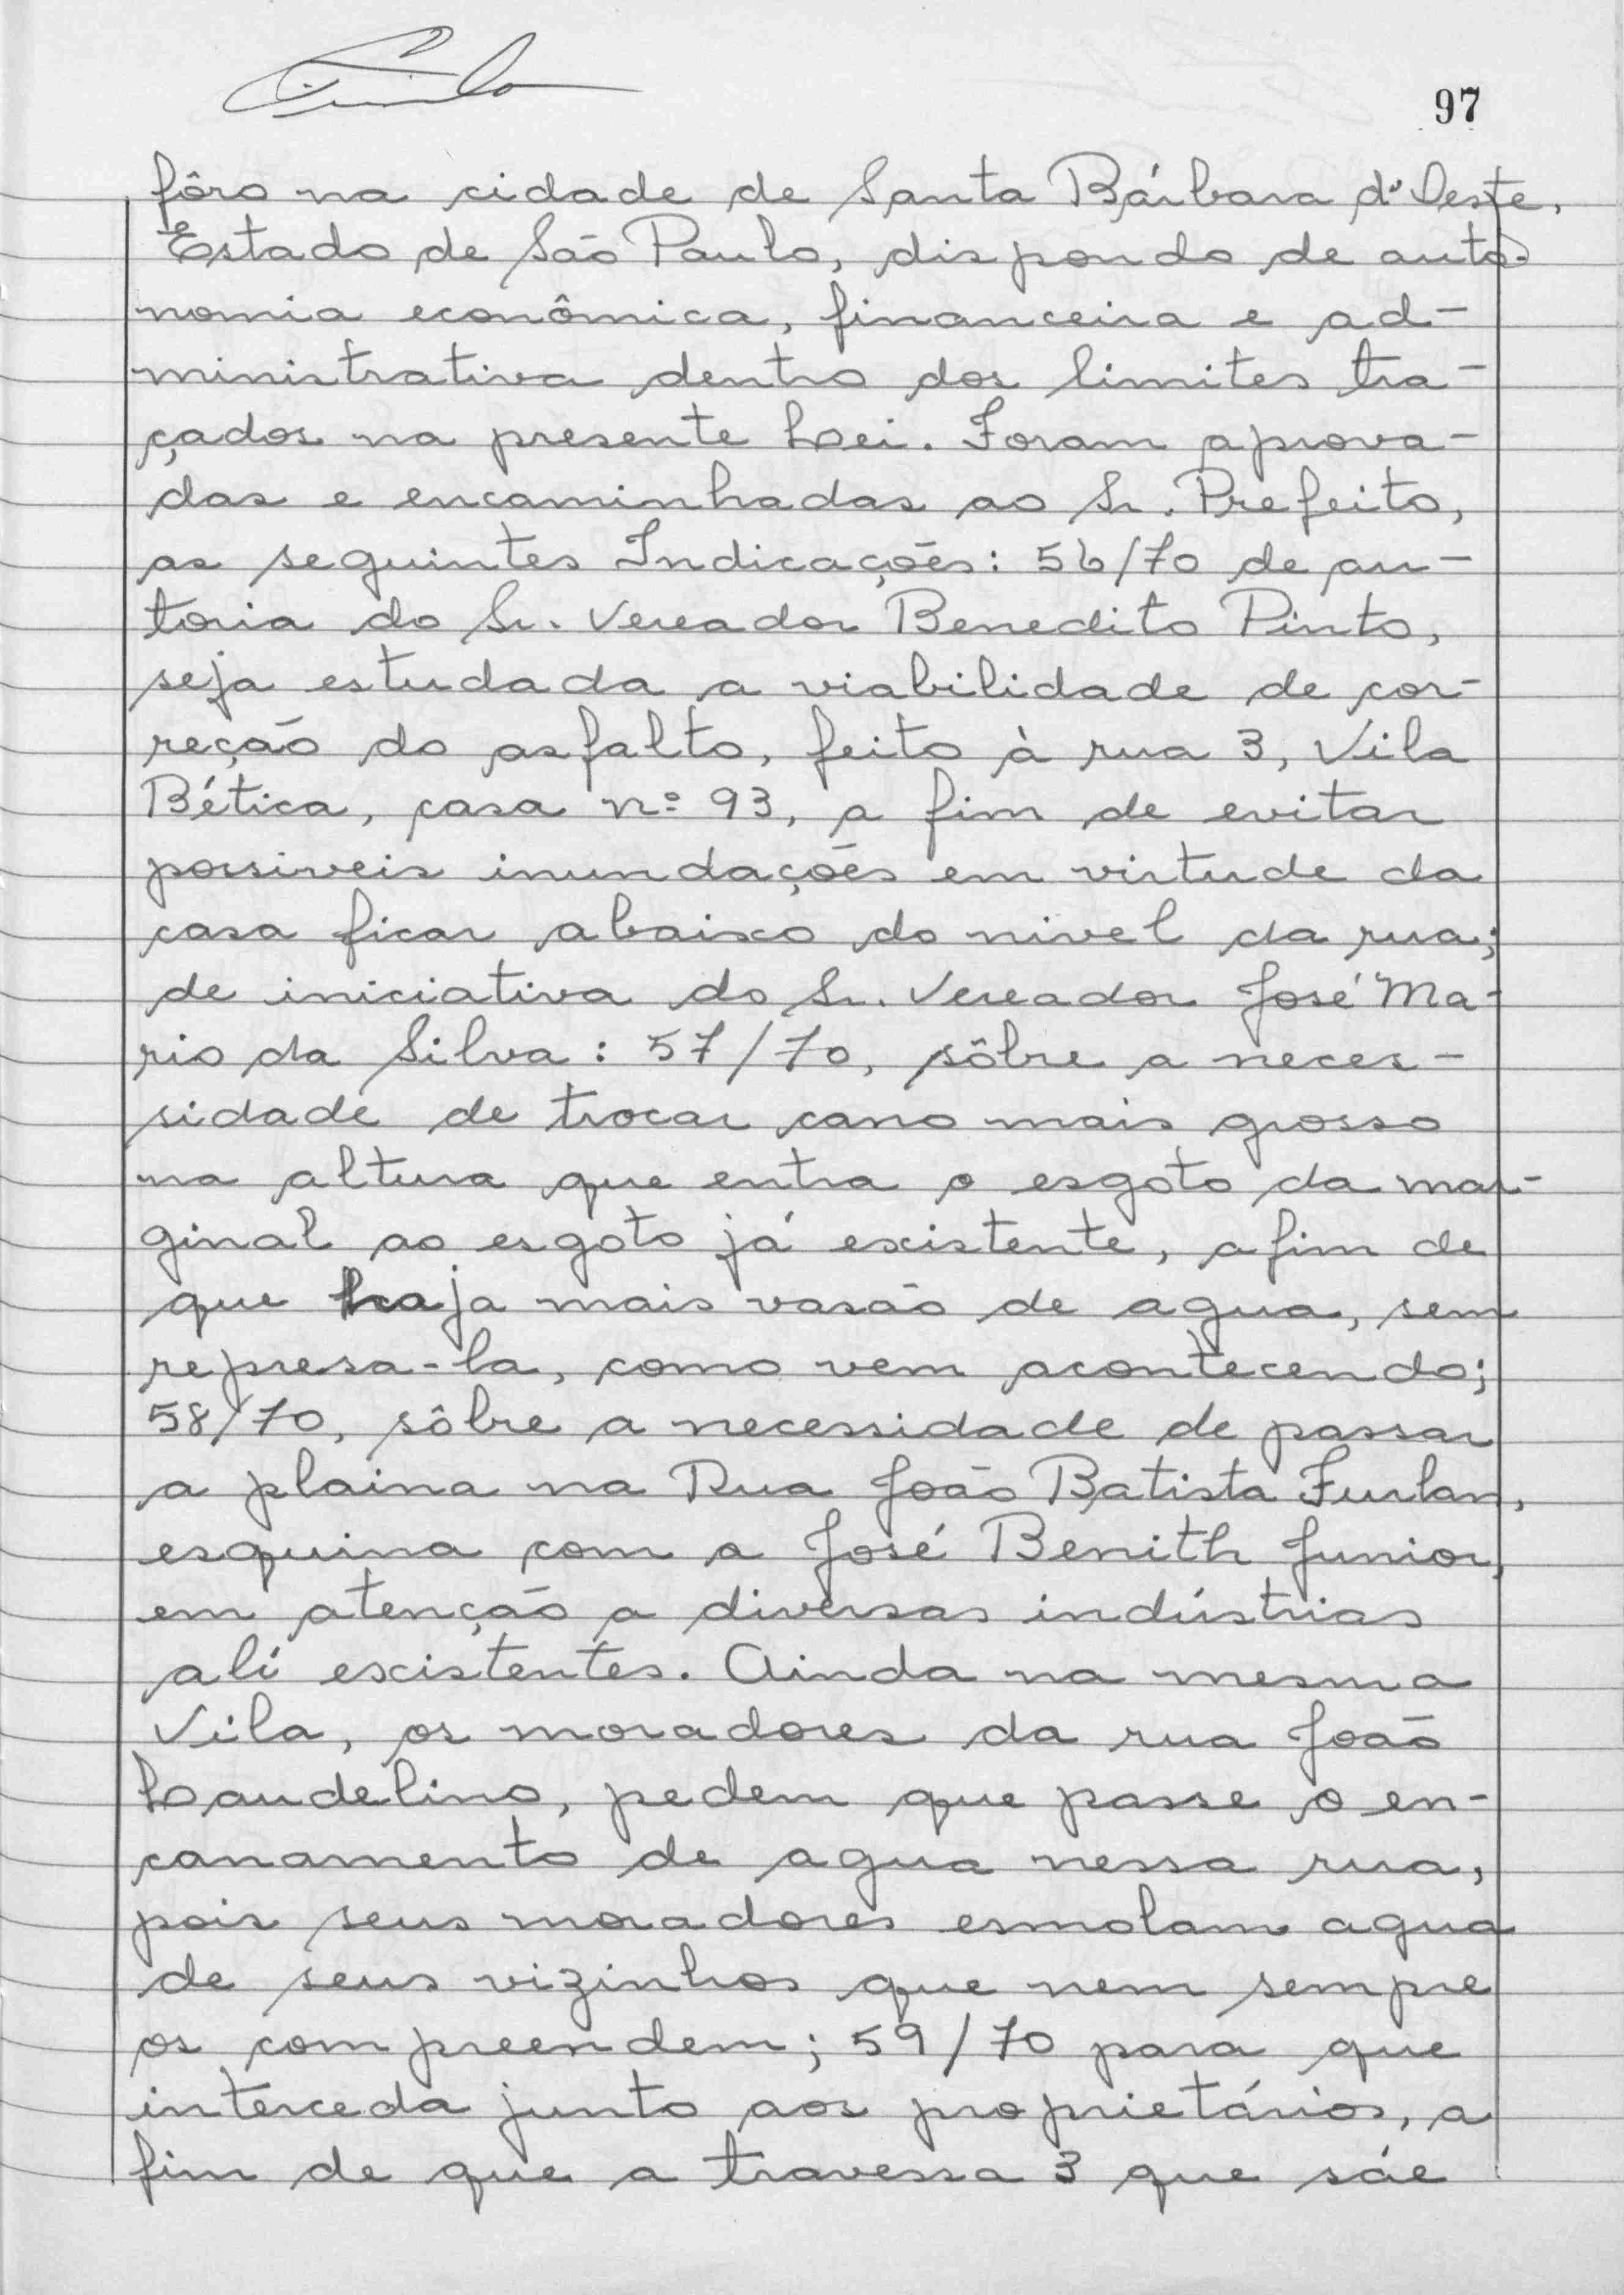 97
fôro na cidade de Santa Bárbara d'Oeste,
Estado de São Paulo, dispondo de auto-
nomia econômica, financeira e ad-
ministrativa dentro dos limites tra-
çados na presente Lei. Foram aprova-
das e encaminhadas ao Sr. Prefeito,
as seguintes Indicações: 56/70 de au-
toria do Sr. Vereador Benedito Pinto,
seja estudada a viabilidade de cor-
reção do asfalto, feito à rua 3, Vila
Bética, casa nº 93, a fim de evitar
possiveis inundações em virtude da
casa ficar abaixo do nivel da rua;
de iniciativa do Sr. Vereador José Ma-
rio da Silva: 57/70, sôbre a neces-
sidade de trocar cano mais grosso
na altura que entra o esgoto da mar-
ginal ao esgoto já existente, afim de
que haja mais vasão de agua, sem
represa-la, como vem acontecendo;
58/70, sôbre a necessidade de passar
a plaina na Rua João Batista Furlan,
esquina com a José Benith Junior,
em atenção a diversas indústrias
alí existentes. Ainda na mesma
Vila, os moradores da rua João
Laudelino, pedem que passe o en-
canamento de agua nessa rua,
pois seus moradores esmolam agua
de seus vizinhos que nem sempre
os compreendem; 59/70 para que
interceda junto aos proprietários, a
fim de que a travessa 3 que sáe